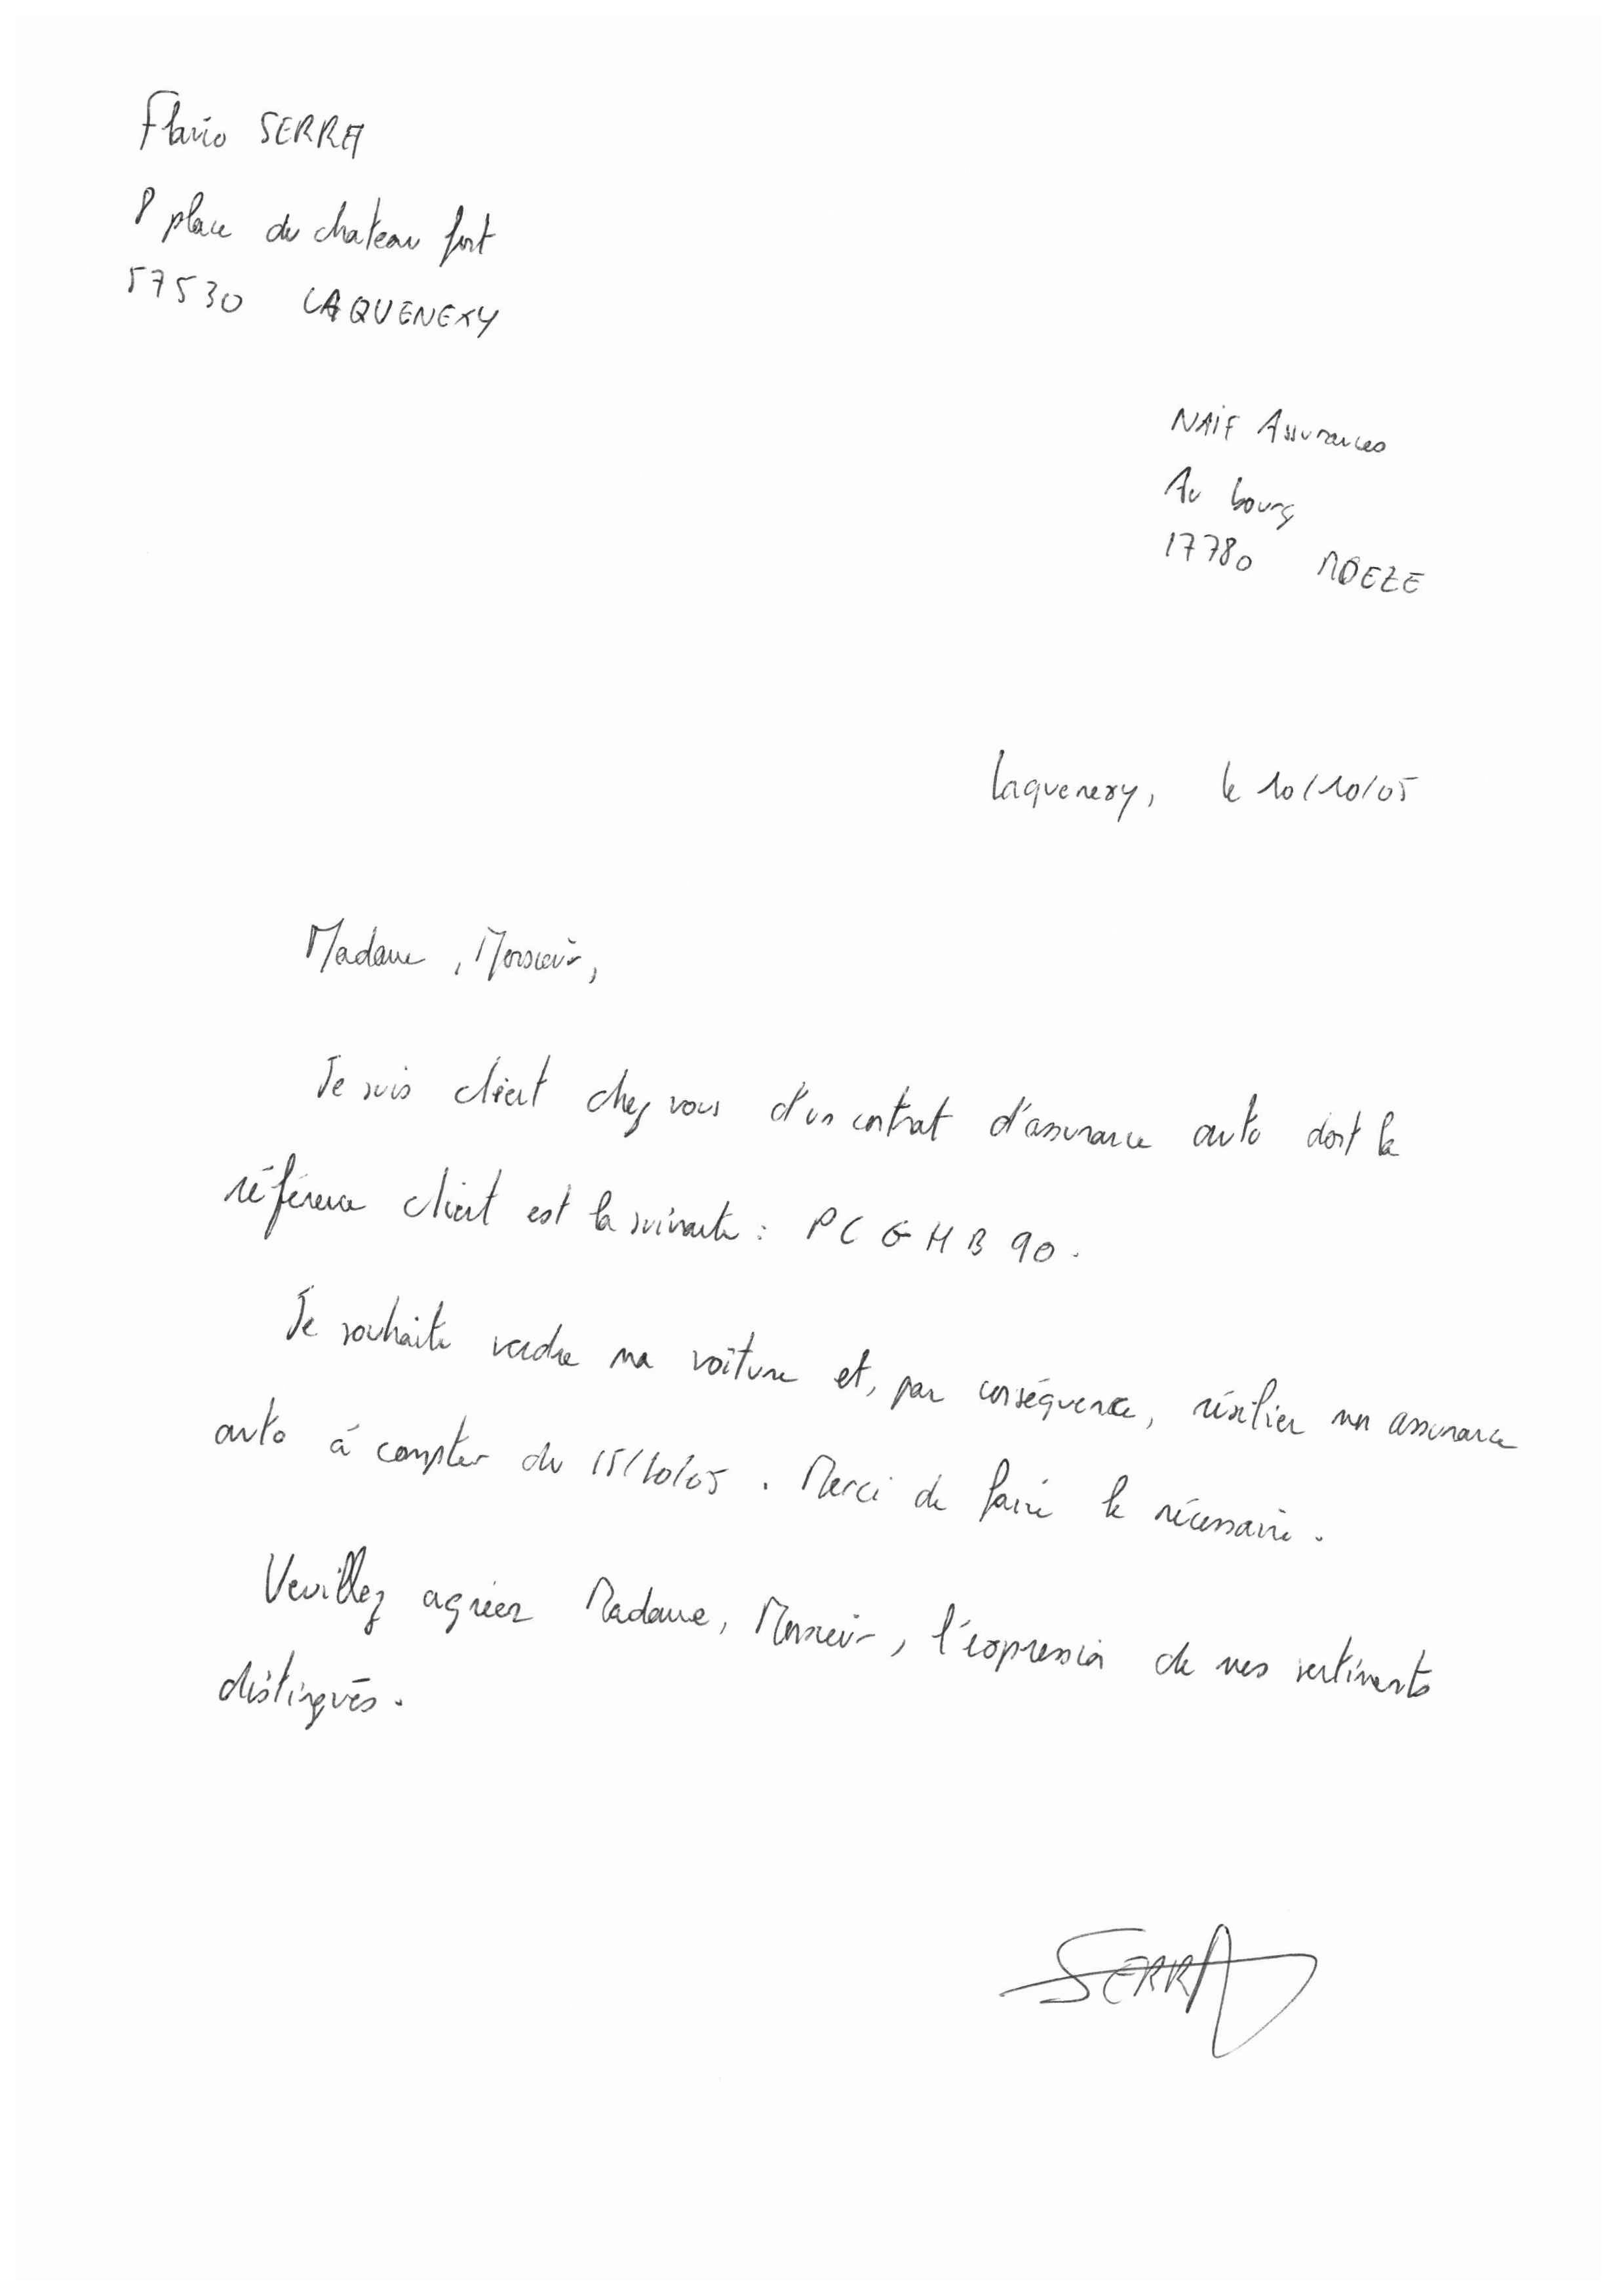 Flavio SERRA
8 place du chateau fort
57530 LAQUENEXY
NAIF Assurances
Au bourg
17780 MOEZE
Laquenexy, le 10/10/05
Madame, Monsieur,
Je suis client chez vous d'un contrat d'assurance auto dont la
référence client est la suivante : PCGHB90.
Je souhaite vendre ma voiture et, par conséquence, résilier mon assurance
auto à compter du 15/10/05. Merci de faire le nécessaire.
Veuillez agréer Madame, Monsieur, l'expression de mes sentiments
distingués.
SERRA